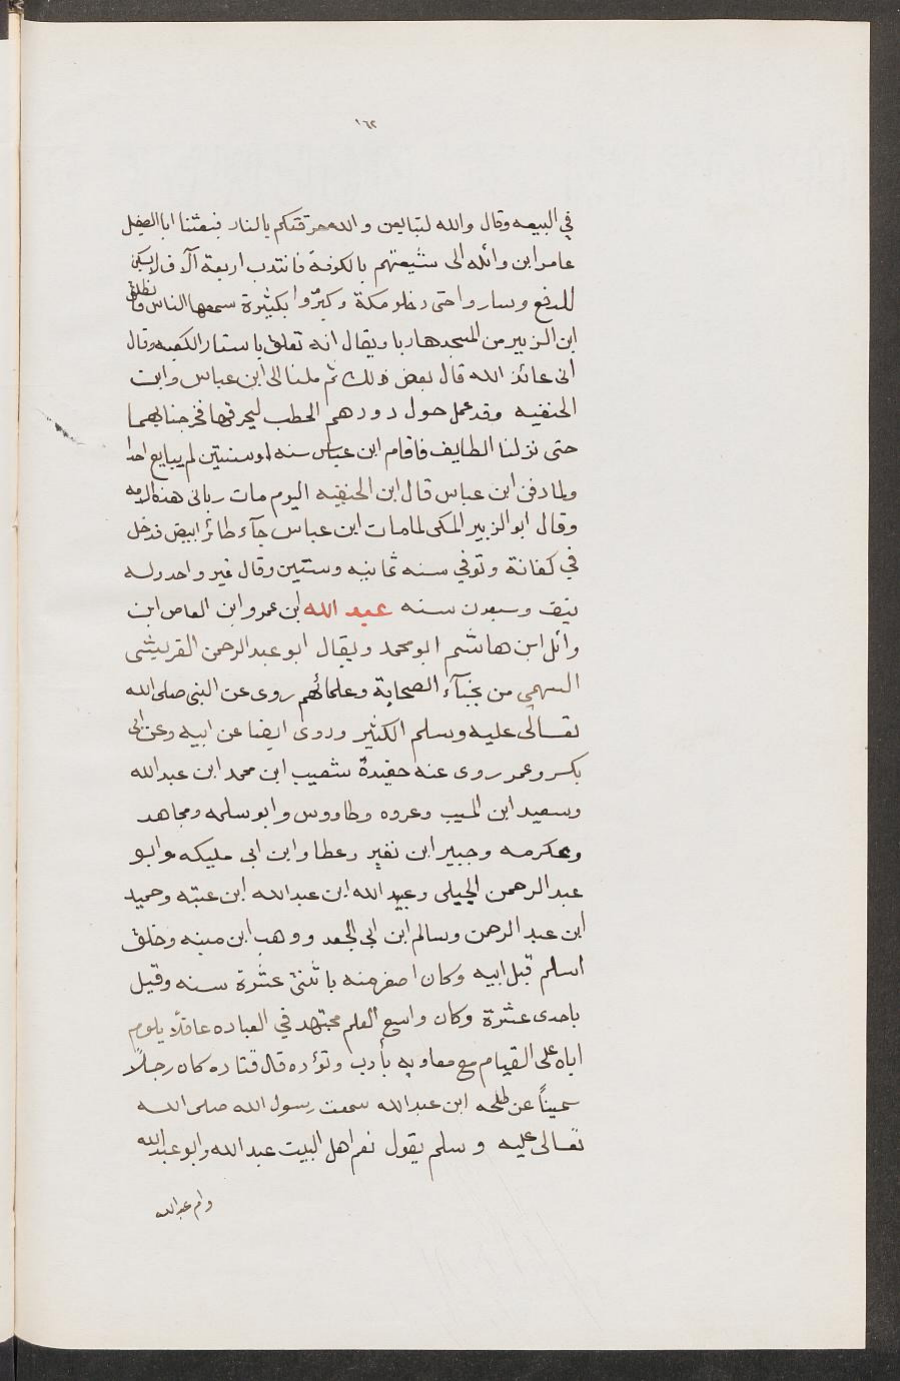 ١٦٢
في البيعه وقال والله لتبايعن و الله حرقتكم بالنار فبعثنا ابا الطفيل
عامر ابن واثله الى شيعتهم بالكوفة فانتدب اربعة آلاف
للدفع وساروا حتى دخلو مكة وكبرّوا بكثيرة سمعها الناس فانطلق
ابن الزبير من المسجد هاربا ويقال انه تعلق باستار الكعبه وقال
انى عائذ الله قال بعض ذلك ثم ملنا الى ابن عباس وابن
الحنفيه وقد عمل حول دورهم الحطب ليحرقها فخرجنا بهما
حتى نزلنا الطايف فاقام ابن عباس سنه او سنتين لم يبايع احدا
ولما دفن ابن عباس قال ابن الحنفيه اليوم مات ربانى هذه الامه
وقال ابو الزبير المكى لما مات ابن عباس جآء طائر ابيض فدخل
في كفانة وتوفي سنه ثمانيه وستين وقال غير واحد وله
نيف وسبعون سنه عبد الله ابن عمرو ابن العاص ابن
وائل ابن هاشم ابو محمد ويقال ابو عبد الرحمن القريشى
السهمي من نجبآء الصحابة وعلمائهم روى عن النبى صلى الله
تعالى عليه وسلم الكثير وروى ايضا عن ابيه وعن ابى
بكر وعمر روى عنه حفيدة شعيب ابن محمد ابن عبد الله
وسعيد ابن المسيب وعروه وطاووس وابو سلمه ومجاهد
وعكرمه وجبير ابن نفير وعطا وابن ابى مليكه وابو
عبد الرحمن الجيلى وعبيد الله ابن عبد الله ابن عتبه وحميد
ابن عبد الرحمن وسالم ابن ابي الجعد ووهب ابن منبه وخلق
اسلم قبل ابيه وكان اصغر منه باثنتى عشرة سنه وقيل
باحدى عشرة وكان واسع العلم مجتهد في العباده عاقلاً يلوم
اباه على القيام مع معاويه بأدب وتؤده قال قتاده كان رجلاً
سميناً عن طلحه ابن عبد الله سمعت رسول الله صلى الله
تعالى عليه وسلم يقول نعم اهل البيت عبد الله وابو عبد الله
وام عبد الله